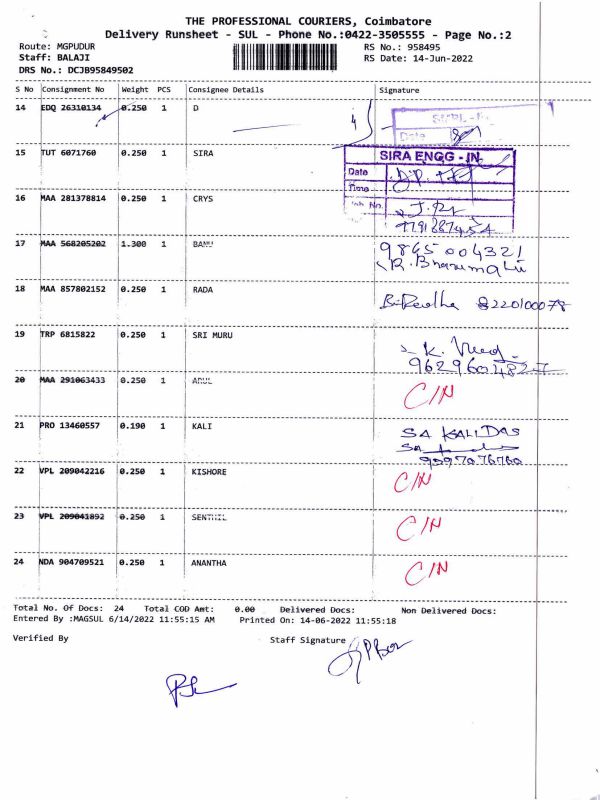 THE PROFESSIONAL COURIERS, Coimbatore
Delivery Runsheet - SUL - Phone No.:0422-3505555 - Page No.:2
Route: MGPUDUR
RS No.: 958495
Staff: BALAJI
RS Date: 14-Jun-2022
DRS No.: DCJB95849502
S No Consignment No Weight PCS Consignee Details Signature
14 EDQ 26310134 0.250 1 D
Date
15 TUT 6071760 0.250 1 SIRA
SIRA ENGG - IN
Date
Time
16 MAA 281378814 0.250 1 CRYS
No.
17 MAA 568205202 1.300 1 BANU
9865004321
R. Bhanumathi
18 MAA 857802152 0.250 1 RADA
8220100078
19 TRP 6815822 0.250 1 SRI MURU
K.
20 MAA 291063433 0.250 1 ARUL
C/N
21 PRO 13460557 0.190 1 KALI
SA KALIDAS
9597076760
22 VPL 209042216 0.250 1 KISHORE
C/N
23 VPL 209041892 0.250 1 SENTHIL
C/N
24 NDA 904709521 0.250 1 ANANTHA
C/N
Total No. Of Docs: 24 Total COD Amt: 0.00 Delivered Docs: Non Delivered Docs:
Entered By :MAGSUL 6/14/2022 11:55:15 AM Printed On: 14-06-2022 11:55:18
Verified By
Staff Signature